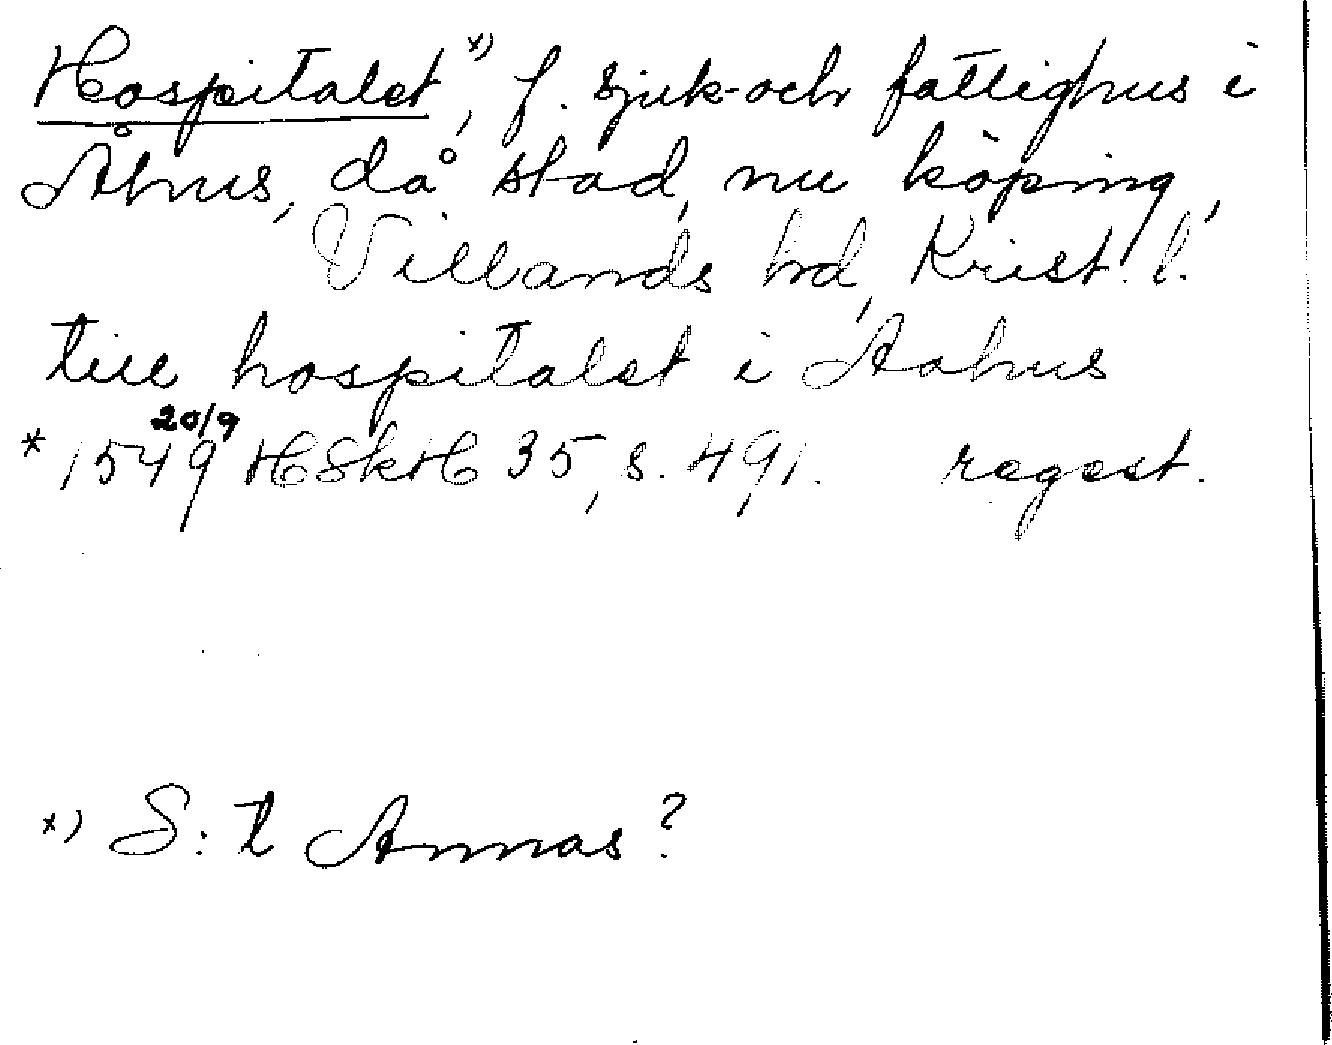 Hospitalet,*) f. sjuk- och fattighus i
Åhus, då stad, nu köping,
Villands hd, Krist. l.
till hospitalet i Aahus
* 1549 20/9 HSkH 35, s. 491. regest.
*) S:t Annas?